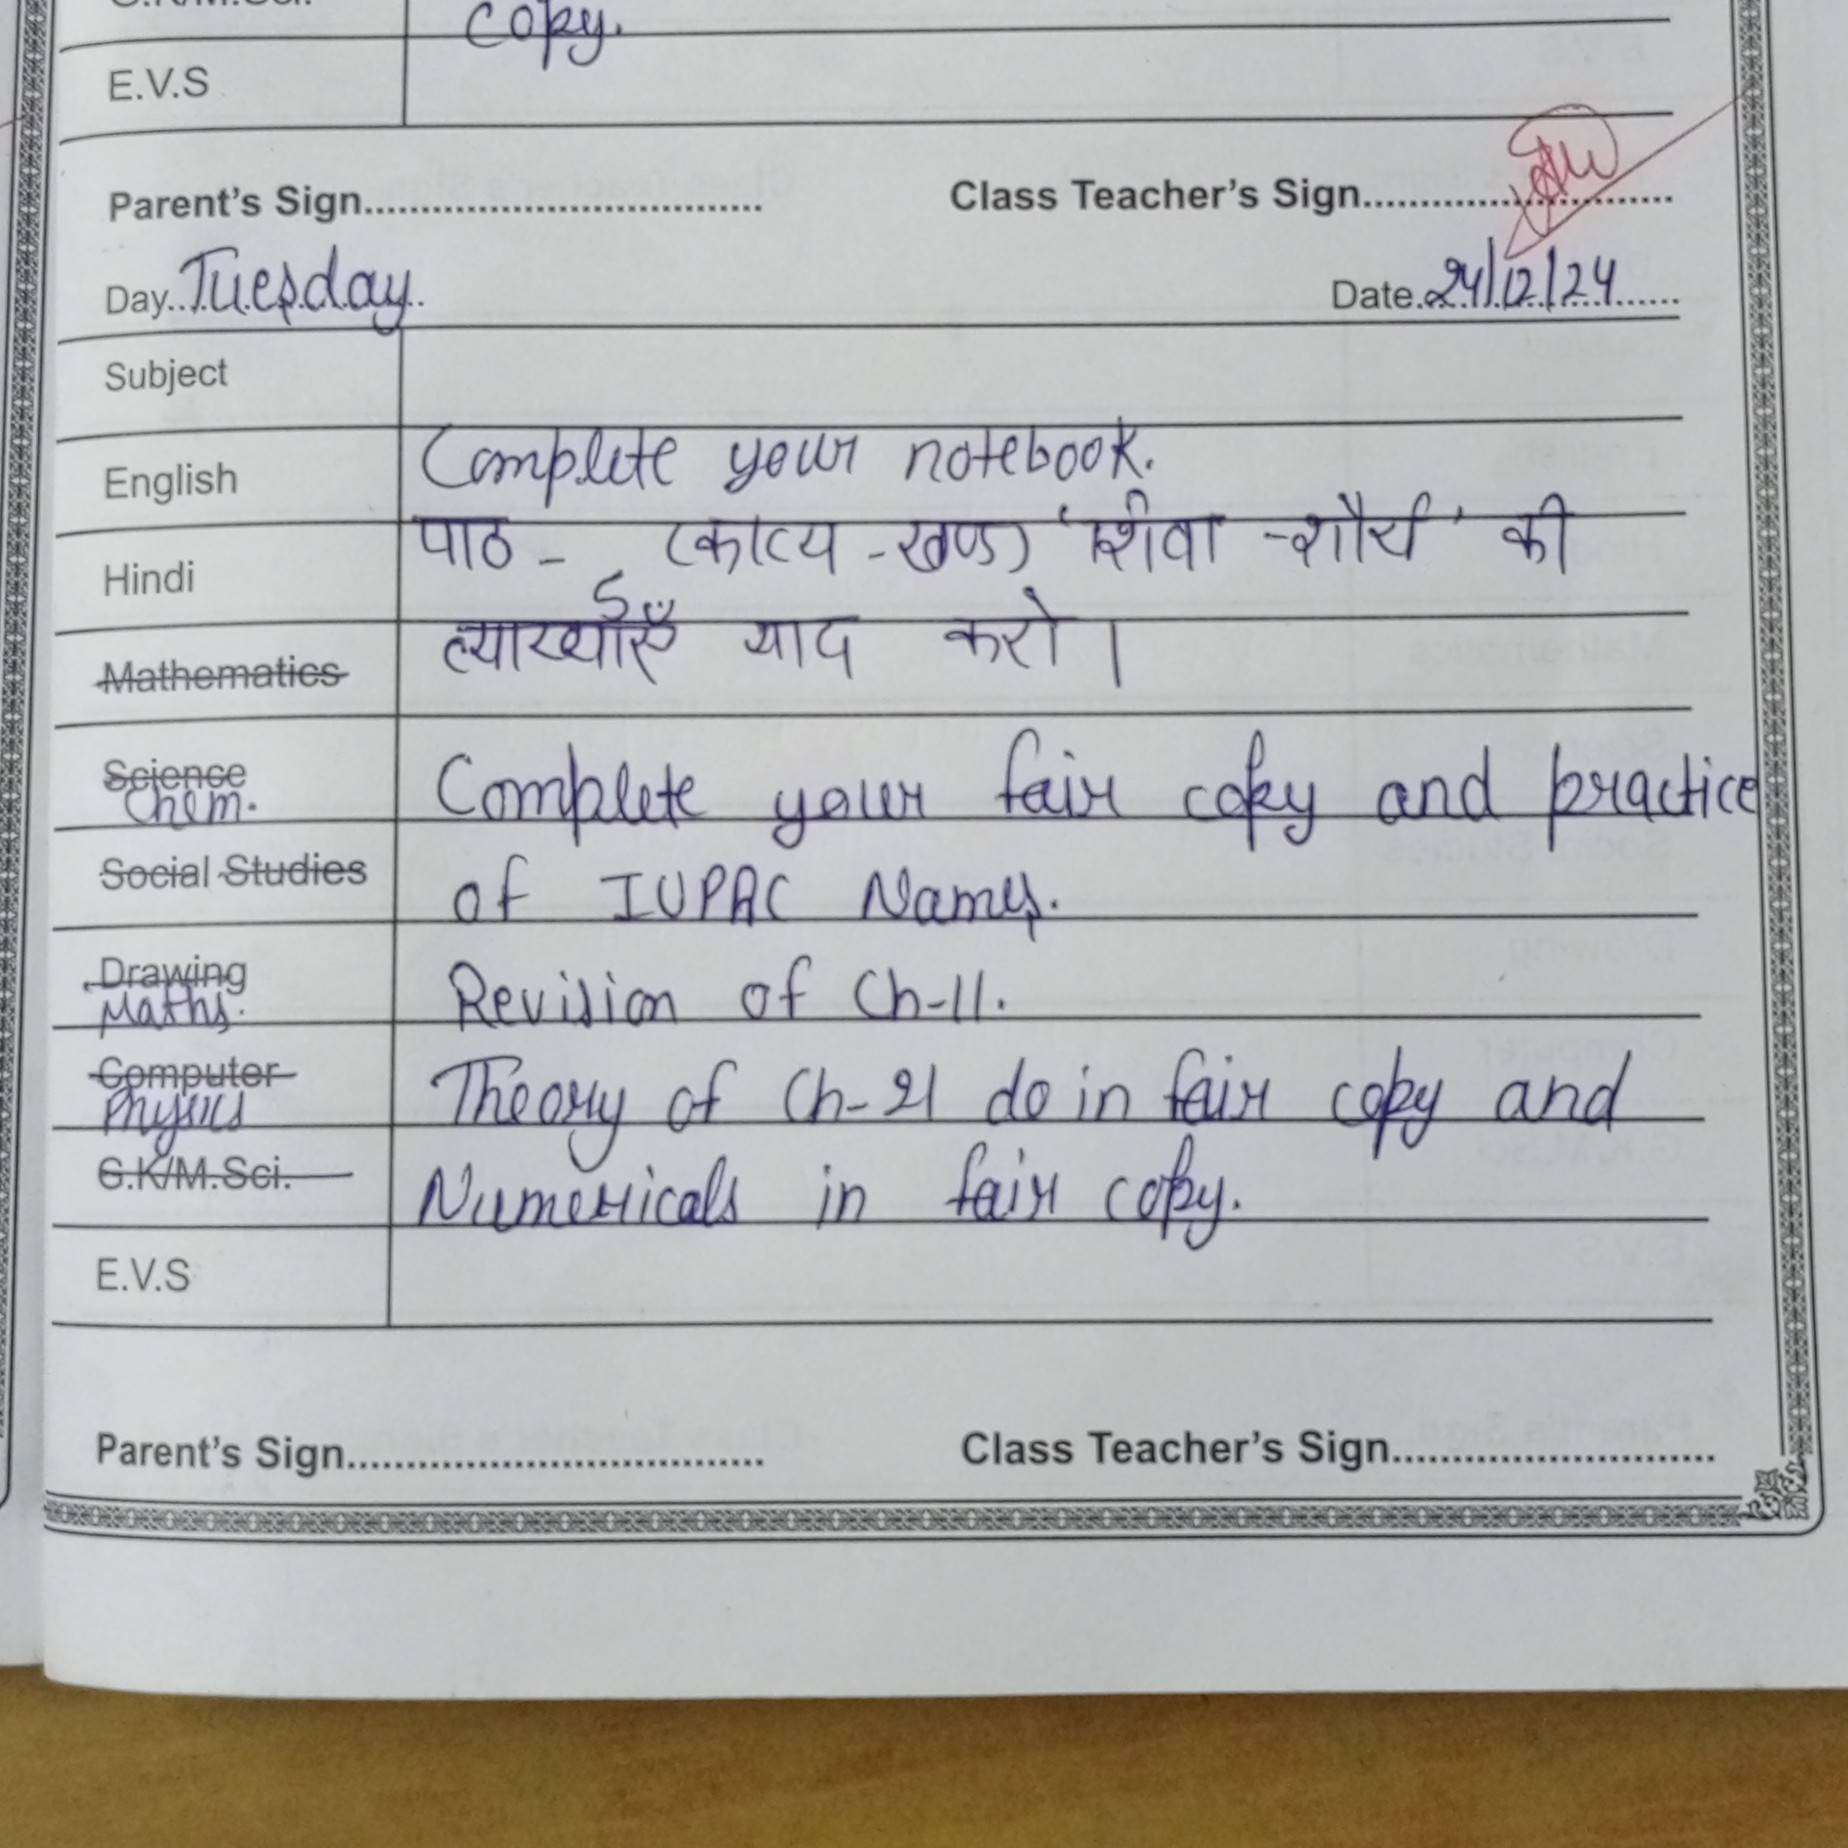 copy.
E.V.S
Parent's Sign.................................... Class Teacher's Sign............................
Day..Tuesday. Date.24/12/24
Subject
English Complete your notebook.
Hindi पाठ - (काव्य - खण्ड) 'शिवा - शौर्य' की
Mathematics व्याख्याएँ याद करो।
Science
Chem. Complete your fair copy and practice
Social Studies of IUPAC Names.
Drawing
Maths. Revision of Ch-11.
Computer
Physics Theory of Ch-21 do in fair copy and
G.K/M.Sci. Numericals in fair copy.
E.V.S
Parent's Sign.................................... Class Teacher's Sign............................